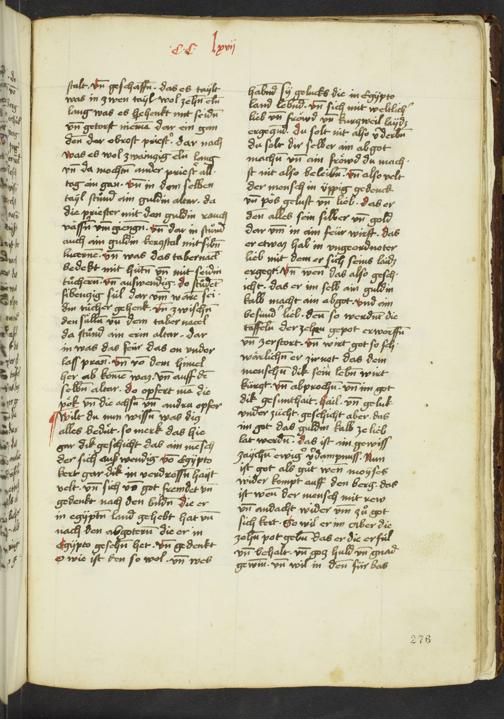 CC lxvij
stalt. Vn̄ geschaffn̄. das es taylt
was in zwen tayl. wol zehn eln
lang was es gehenkt mit seidn̄
vn̄ getorst niema dar ein gan
den der obrost priest. dar nach
was es wol zwainzig eln lang
vn̄ da mochtn̄ ander priest all
tag ein gan. Vn̄ in dem selben
tayl stund ain guldin altar. da
die priester mit dem guldin rauch
vassn̄ vm giengn̄. Vn̄ dar in stund
auch ain guldin kerzstal mit sibn̄
lucerne. Vn̄ was das tabernacl
bedekt mit hütn̄ vn̄ mit seidin
tüchern. Vn̄ auswendig do stundet
sibenzig sül dar vm ware sei
din tücher gehenk. Vn̄ zwischn̄
den süllin vn̄ dem tabernacel
da stund ain erin altar. dar
in was das feür das on vnder
lass pran. Vn̄ vo dem himel
her ab kome was. Vn̄ auff de
selbn̄ altar. Do opfert me die
pök vn̄ die achsn̄ vn̄ andru opfer
Wilt du nun wissn̄ was dis
alles bedüt. so merk das hie
gar dik geschicht das ain mēsch
der sich auswendig vo egipto
kert gar dik in verdrossn̄ hait
velt. vn̄ sich vo got fremdet vn̄
gedenkt nach den bildn̄ die er
in egiptn̄ land gehebt hat vn̄
nach den abgotern die er in
Egipto gesehn̄ het. Vn̄ gedenkt
o wie ist den so wol. vn̄ wes
habnd sy gelucks die in Egipto
land lebnd. vn̄ sich mit weltlich
lieb vn̄ fröwd vn̄ kurzweil laydz
ergezzn̄. du solt nit also v̄derbn̄
du solt dir selber ain abgot
machn̄ vn̄ ain fröwd du mach
st nit also belibn̄. Vn̄ also velt
der mensch in üppig gedenck
vn̄ pos gelust vn̄ lieb. das er
den alles sein silber vn̄ gold
dar vm in ain feür wirft. das
er etwas hab in vngeordnoter
lieb mit dem er sich seins laids
ergezt. Vn̄ wen das also gesch
icht. das er im selb ain guldin
kalb macht ain abgot. Vnd ain
besund lieb. den so werdn̄t die
taffeln der zehn̄ gepot erworffn̄
vn̄ zerstort. Vn̄ wirt got so sch
warlichn̄ er zürnet das dem
menschn̄ dik sein lebn̄ wirt
kürzt vn̄ abprochn̄. vn̄ im got
dik gesunthait. hail. vn̄ geluk
vnder zücht. geschicht aber. das
im got das guldin kalb ze lieb
lat werdn̄. das ist ain gewiss
zaichn̄ ewig v̄dampnuss. Nun
ist got also güt wen moyses
wider kompt auff den berg das
ist wen der mensch mit rew
vn̄ andacht wider vm zü got
sich kert. So wil er im aber die
zehn̄ pot gebn̄ das er die er fül
vn̄ behalt. vn̄ gocz huld vn̄ gnad
gewin. vn̄ wil in den für bas
276